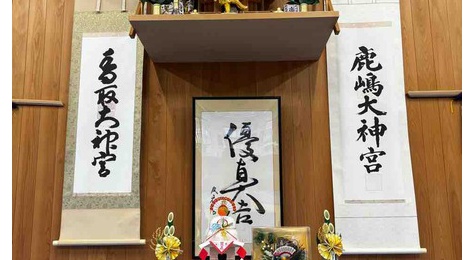 鹿嶋大神宮
優真
香取大神宮